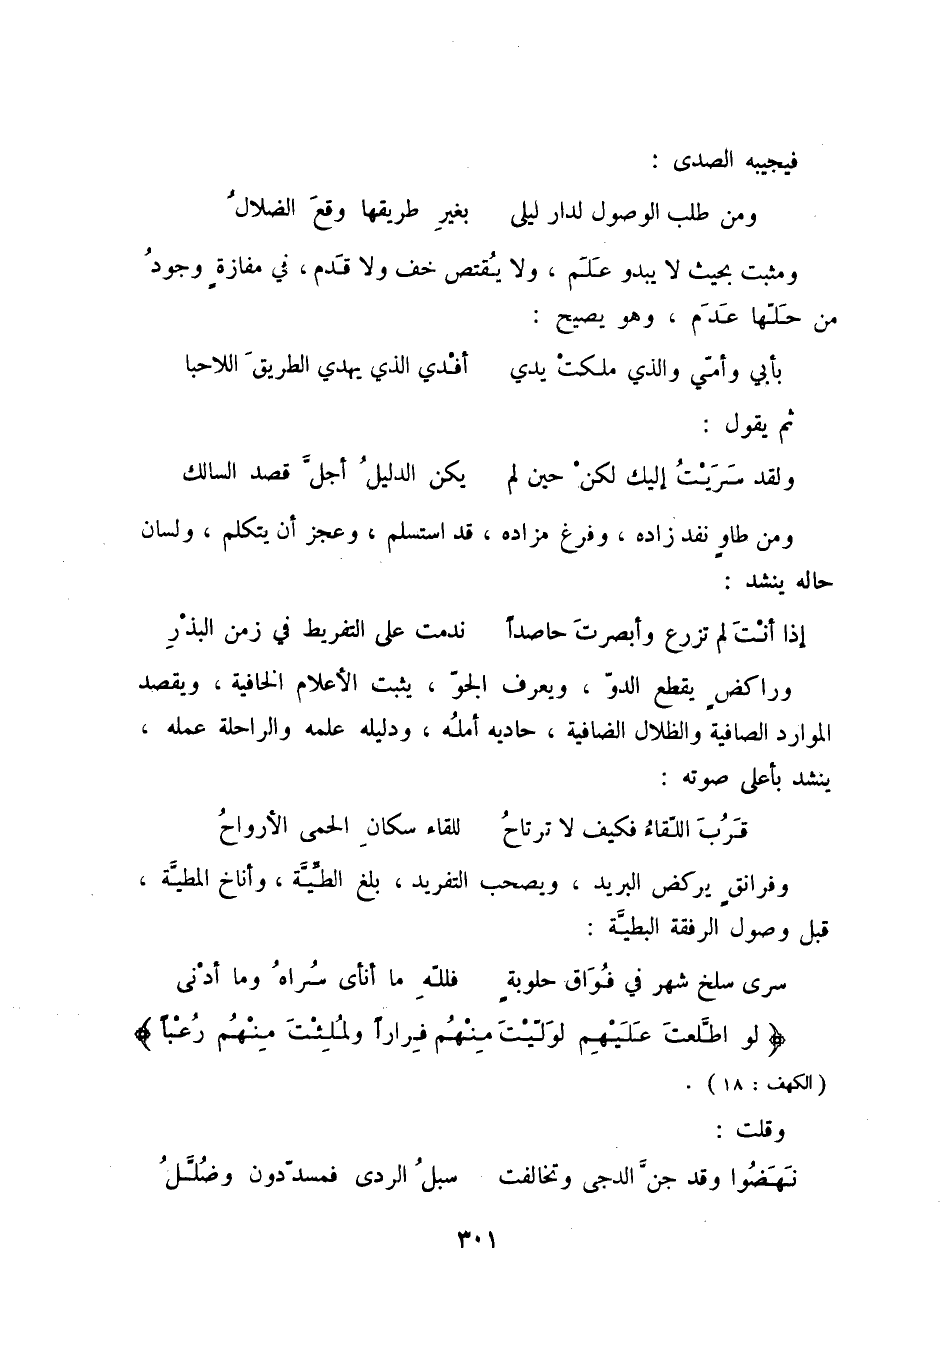 فيجيبه الصدى :
ومن طلب الوصول لدار ليلى بغيرِ طريقها وقعَ الضلالُ
ومثبت بحيث لا يبدو عَلَم ، ولا يُقتص خف ولا قَدم ، في مفازةٍ وجودُ
من حَلّها عَدَم ، وهو يصيح :
بأبي وأمّي والذي ملكتْ يدي أفْدي الذي يهدي الطريقَ اللاحبا
ثم يقول :
ولقد سَرَيْتُ إليك لكنْ حين لم يكن الدليلُ أجلَّ قصد السالك
ومن طاوٍ نفد زاده ، وفرغ مزاده ، قد استسلم ، وعجز أن يتكلم ، ولسان
حاله ينشد :
إذا أنْتَ لم تزرع وأبصرتَ حاصداً ندمت على التفريط في زمن البذْرِ
وراكضٍ يقطع الدوّ ، ويعرف الجوّ ، يثبت الأعلام الخافية ، ويقصد
الموارد الصافية والظلال الضافية ، حاديه أملُه ، ودليله علمه والراحلة عمله ،
ينشد بأعلى صوته :
قَرُبَ اللّقاءُ فكيف لا ترتاحُ للقاء سكانِ الحمى الأرواحُ
وفرانقٍ يركض البريد ، ويصحب التفريد ، بلغ الطِّيَّة ، وأناخ المطيَّة ،
قبل وصول الرفقة البطيَّة :
سرى سلخ شهر في فُوَاق حلوبةٍ فللّهِ ما أنأى سُراهُ وما أدْنى
﴿ لو اطَّلعتَ عَلَيْهِم لوَلّيْتَ مِنْهُم فِراراً ولمُلِئْتَ مِنْهُم رُعْباً ﴾
( الكهف : ١٨ ) .
وقلت :
نَهَضُوا وقد جنَّ الدجى وتخالفت سبلُ الردى فمسدّدون وضُلَّلُ
٣٠١